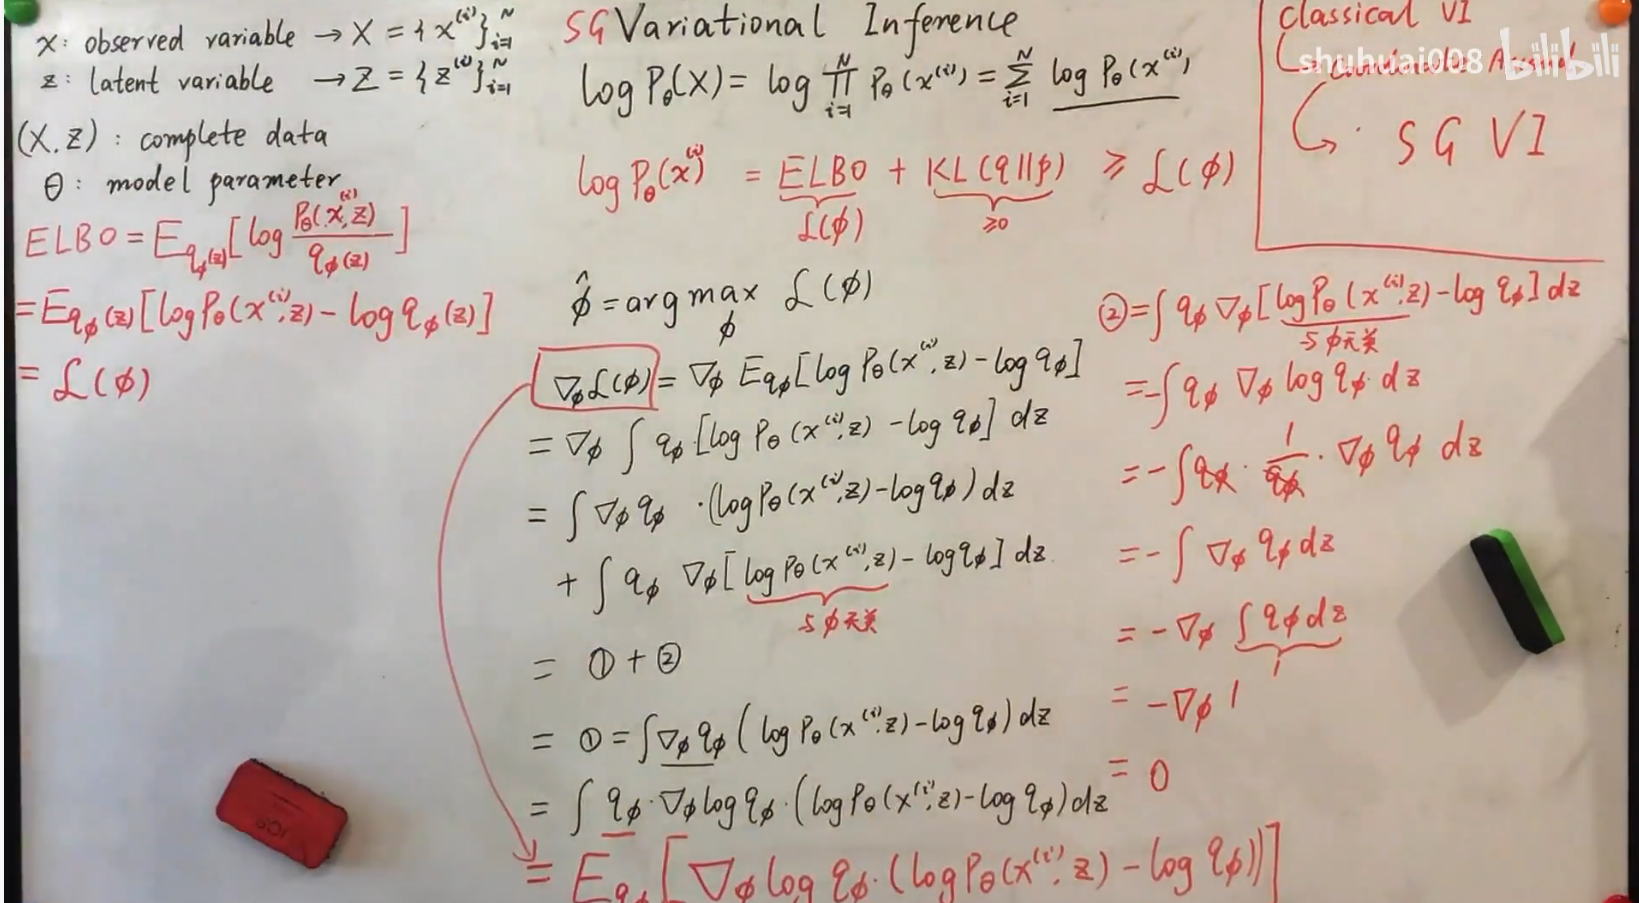 x: observed variable → X = {x^(i)}_{i=1}^N
z: latent variable → Z = {z^(i)}_{i=1}^N
(X, Z): complete data
θ: model parameter
ELBO = E_{q_ϕ(z)}[log P_θ(x^(i), z) / q_ϕ(z)]
= E_{q_ϕ(z)}[log P_θ(x^(i), z) - log q_ϕ(z)]
= ℒ(ϕ)
SGVariational Inference
log P_θ(X) = log ∏_{i=1}^N P_θ(x^(i)) = ∑_{i=1}^N log P_θ(x^(i))
log P_θ(x^(i)) = ELBO + KL(q||p) ≥ ℒ(ϕ)
ℒ(ϕ) ≥0
ϕ̂ = arg max_ϕ ℒ(ϕ)
∇_ϕ ℒ(ϕ) = ∇_ϕ E_{q_ϕ}[log P_θ(x^(i), z) - log q_ϕ]
= ∇_ϕ ∫ q_ϕ [log P_θ(x^(i), z) - log q_ϕ] dz
= ∫ ∇_ϕ q_ϕ · (log P_θ(x^(i), z) - log q_ϕ) dz
+ ∫ q_ϕ ∇_ϕ [log P_θ(x^(i), z) - log q_ϕ] dz
与ϕ无关
= ① + ②
= ① = ∫ ∇_ϕ q_ϕ (log P_θ(x^(i), z) - log q_ϕ) dz
= ∫ q_ϕ · ∇_ϕ log q_ϕ · (log P_θ(x^(i), z) - log q_ϕ) dz
= E_{q_ϕ}[∇_ϕ log q_ϕ · (log P_θ(x^(i), z) - log q_ϕ)]
classical VI
shuhuai008 bilibili
SGVI
② = ∫ q_ϕ ∇_ϕ [log P_θ(x^(i), z) - log q_ϕ] dz
与ϕ无关
= -∫ q_ϕ ∇_ϕ log q_ϕ · dz
= -∫ q_ϕ · 1/q_ϕ · ∇_ϕ q_ϕ dz
= -∫ ∇_ϕ q_ϕ dz
= -∇_ϕ ∫ q_ϕ dz
1
= -∇_ϕ 1
= 0